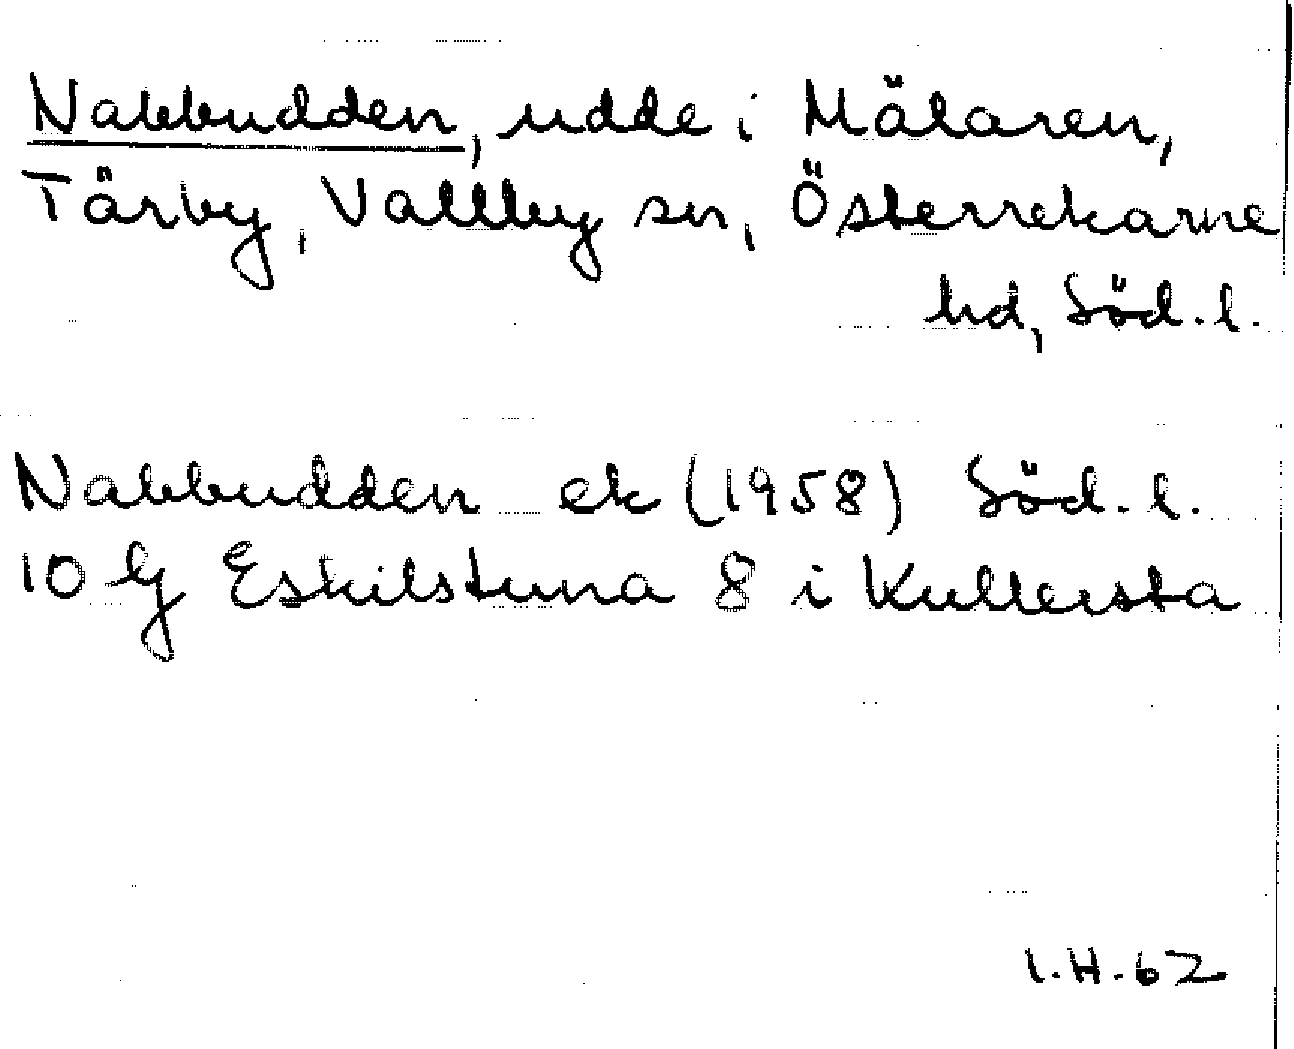 Nabbudden, udde i Mälaren,
Tärby, Vallby sn, Österrekarne
hd, Söd. l.
Nabbudden ek (1958) Söd. l.
10 G Eskilstuna 8 i Kullersta
I.H. 62